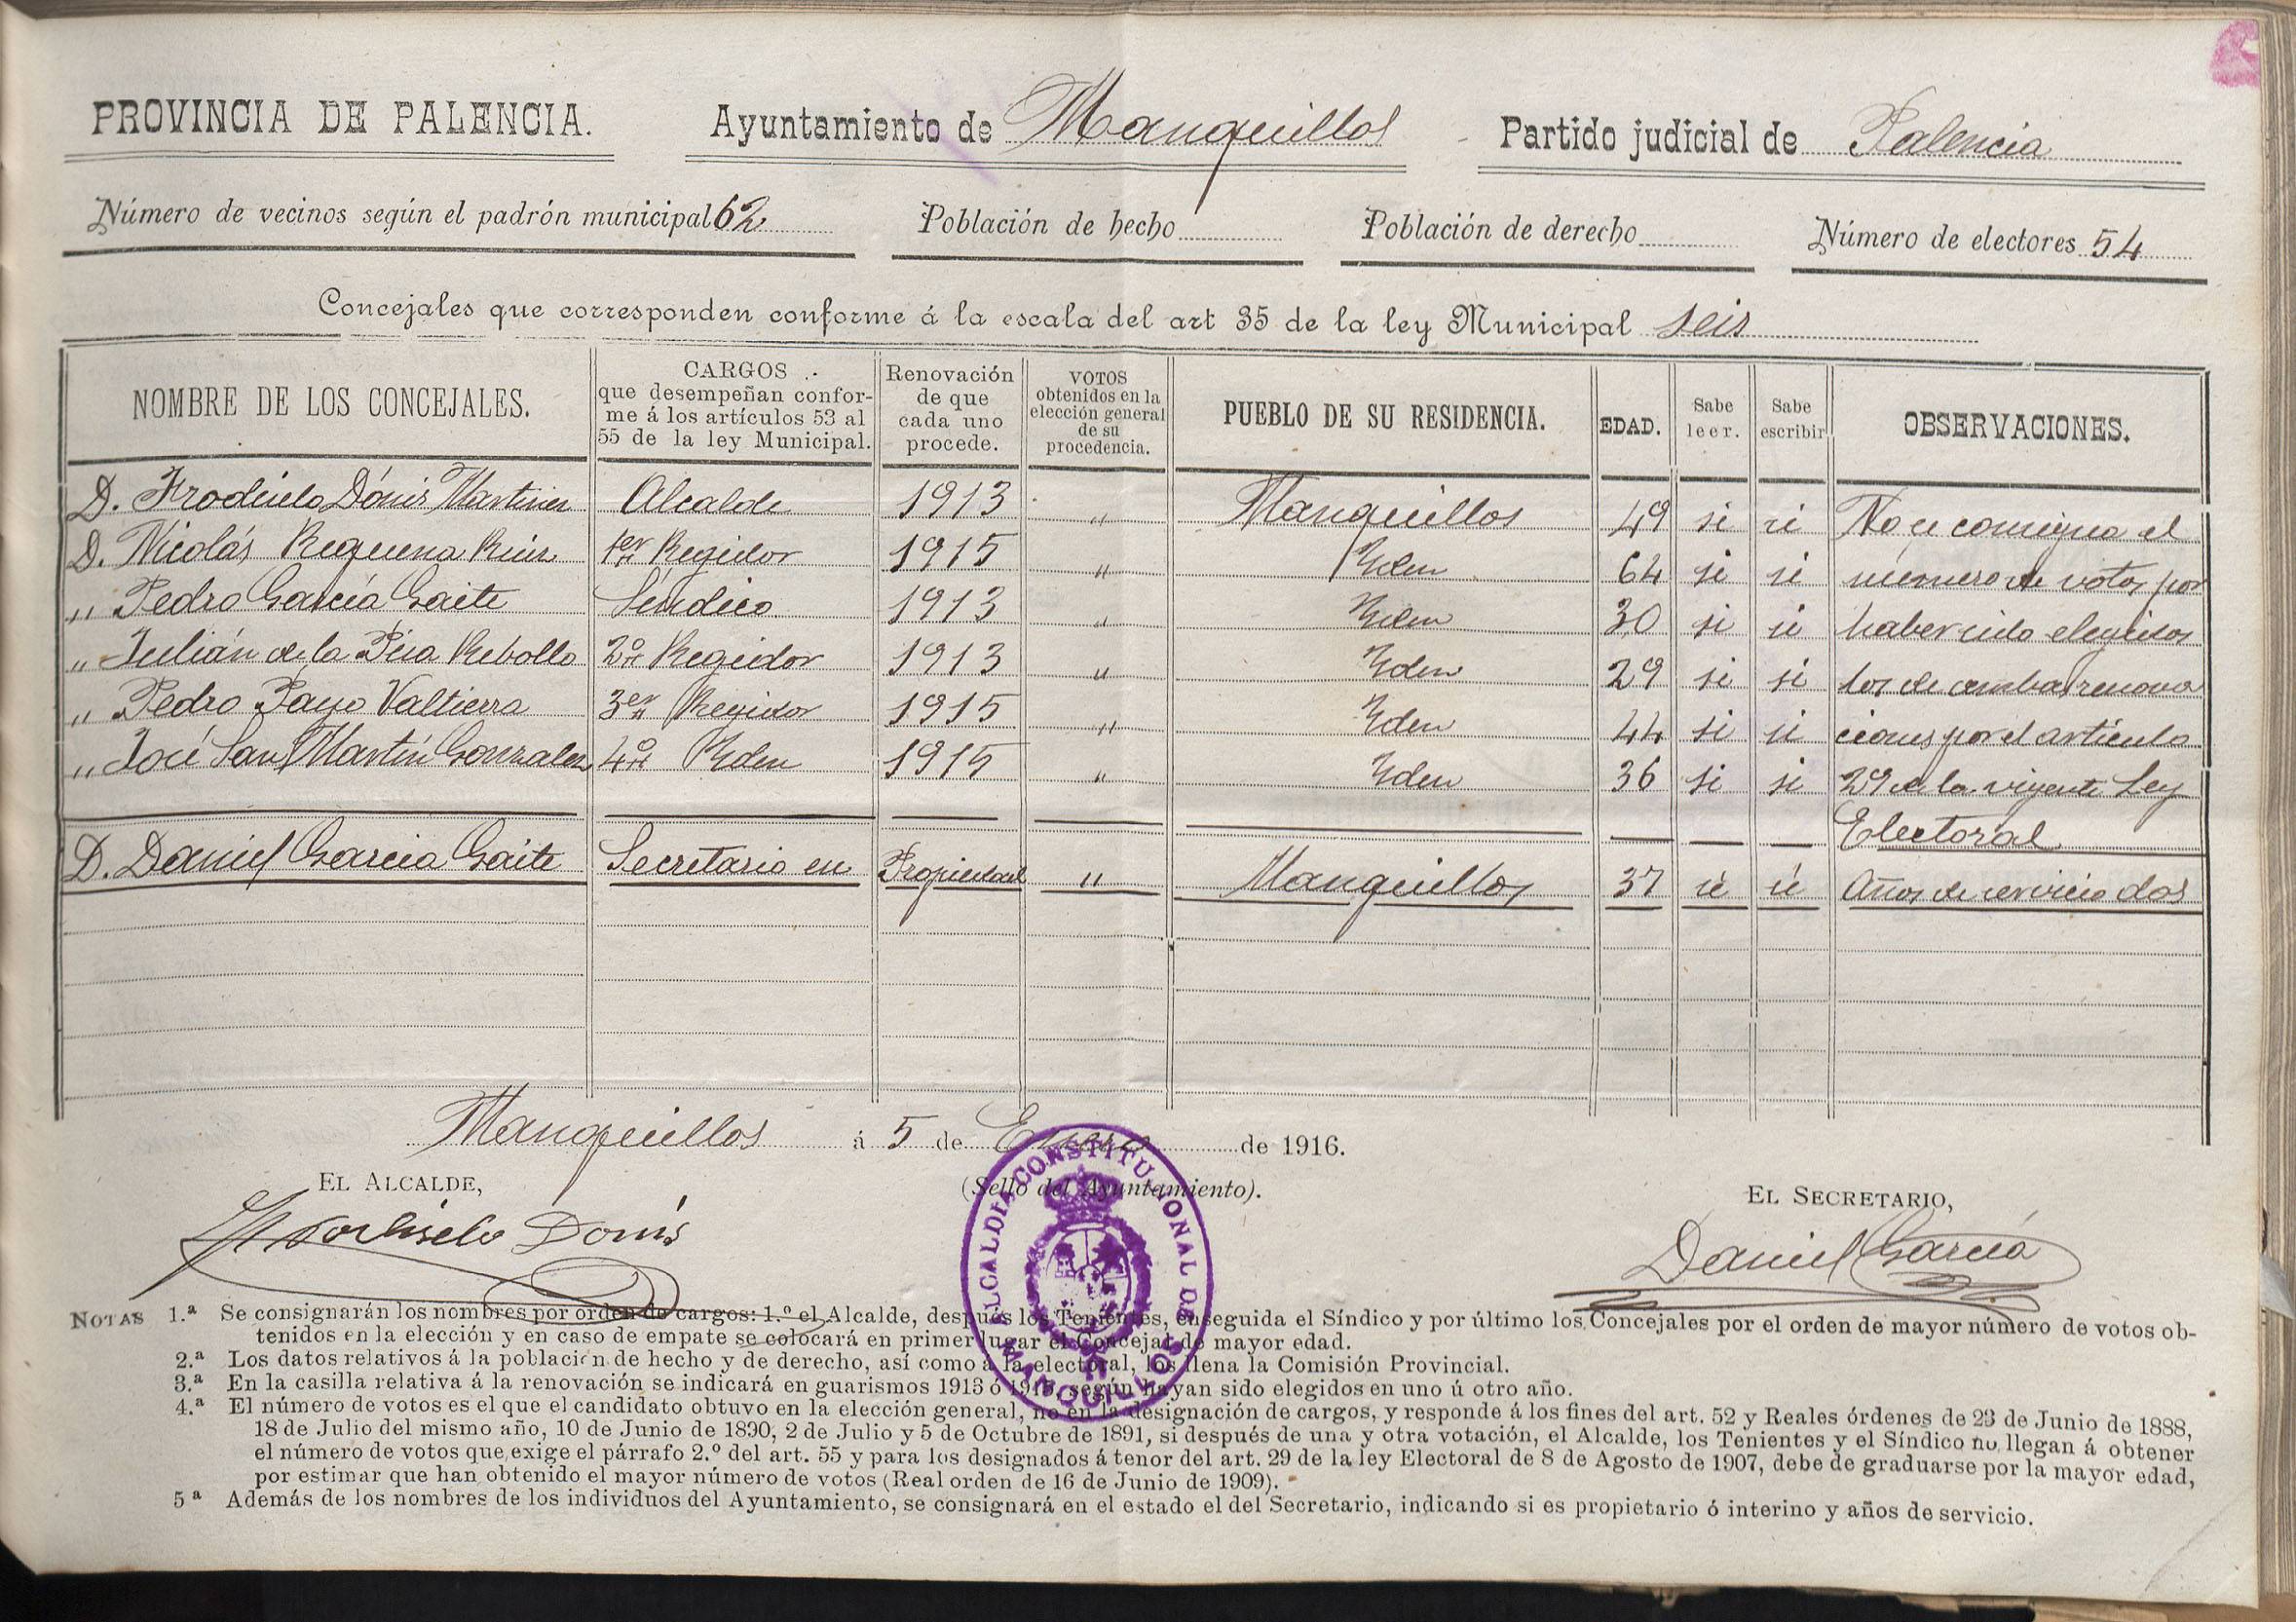 PROVINCIA DE PALENCIA. Ayuntamiento de Manquillos Partido judicial de Palencia
Número de vecinos según el padrón municipal 62 Población de hecho Población de derecho Número de electores 54
Concejales que corresponden conforme á la escala del art 35 de la ley Municipal seis
NOMBRE DE LOS CONCEJALES. CARGOS que desempeñan confor-me á los artículos 53 al 55 de la ley Municipal. Renovación de que cada uno procede. VOTOS obtenidos en la elección general de su procedencia. PUEBLO DE SU RESIDENCIA. EDAD. Sabe leer. Sabe escribir OBSERVACIONES.
D. Dónis Martinez Alcalde 1913 " Manquillos 49 si si No se consigna el
D. Nicolás Requena Ruiz 1er Regidor 1915 " Yden 64 si si número de votos por
" Pedro García Gaite Síndico 1913 " Yden 30 si si haber sido elegidos
" Julián de la Pisa Rebollo 2º Regidor 1913 " Yden 29 si si los de ambas renova
" Pedro Payo Valtierra 3er Regidor 1915 " Yden 44 si si ciones por el artículo
" José San Martín Gonzalez 4º Yden 1915 " Yden 36 si si 29 de la vigente Ley
Electoral
D. Daniel García Gaite Secretario en Propiedad " Manquillos 37 si si Años de servicio dos
Manquillos á 5 de Enero de 1916.
EL ALCALDE, (Sello del Ayuntamiento). EL SECRETARIO,
Donis Daniel García
ALCALDIA CONSTITUCIONAL DE MANQUILLOS
NOTAS 1.ª Se consignarán los nombres por orden de cargos: 1.º el Alcalde, después los Tenientes, enseguida el Síndico y por último los Concejales por el orden de mayor número de votos ob-
tenidos en la elección y en caso de empate se colocará en primer lugar el Concejal de mayor edad.
2.ª Los datos relativos á la población de hecho y de derecho, así como á la electoral, los llena la Comisión Provincial.
3.ª En la casilla relativa á la renovación se indicará en guarismos 1913 ó 1915, según hayan sido elegidos en uno ú otro año.
4.ª El número de votos es el que el candidato obtuvo en la elección general, no en la designación de cargos, y responde á los fines del art. 52 y Reales órdenes de 23 de Junio de 1888,
18 de Julio del mismo año, 10 de Junio de 1890, 2 de Julio y 5 de Octubre de 1891, si después de una y otra votación, el Alcalde, los Tenientes y el Síndico no llegan á obtener
el número de votos que exige el párrafo 2.º del art. 55 y para los designados á tenor del art. 29 de la ley Electoral de 8 de Agosto de 1907, debe de graduarse por la mayor edad,
por estimar que han obtenido el mayor número de votos (Real orden de 16 de Junio de 1909).
5ª Además de los nombres de los individuos del Ayuntamiento, se consignará en el estado el del Secretario, indicando si es propietario ó interino y años de servicio.